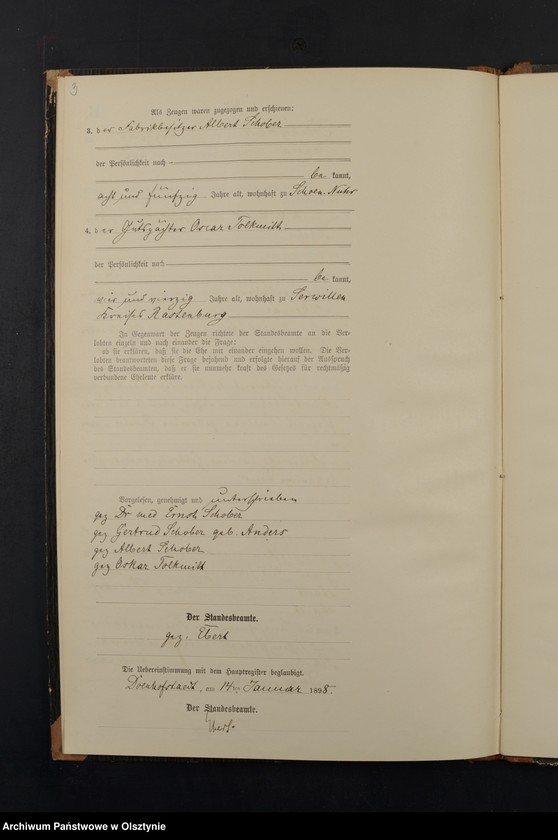 3
Als Zeugen waren zugezogen und erschienen:
3. der Fabrikbesitzer Albert Schober
der Persönlichkeit nach
be kannt,
acht und fünfzig Jahre alt, wohnhaft zu Schoen. Nuhr
4. der Gutspächter Oscar Tolkmitt
der Persönlichkeit nach
be kannt,
vier und vierzig Jahre alt, wohnhaft zu Serwillen
Kreises Rastenburg
In Gegenwart der Zeugen richtete der Standesbeamte an die Ver-
lobten einzeln und nach einander die Frage:
ob sie erklären, daß sie die Ehe mit einander eingehen wollen. Die Ver-
lobten beantworteten diese Frage bejahend und erfolgte hierauf der Ausspruch
des Standesbeamten, daß er sie nunmehr kraft des Gesetzes für rechtmäßig
verbundene Eheleute erkläre.
Vorgelesen, genehmigt und unterschrieben
gez Dr med Ernst Schober
gez Gertrud Schober geb. Anders
gez Albert Schober
gez Oskar Tolkmitt
Der Standesbeamte.
gez. Ebert
Die Uebereinstimmung mit dem Hauptregister beglaubigt.
Doenhofstaedt, am 14ten Januar 1898.
Der Standesbeamte.
Ebert.
Archiwum Państwowe w Olsztynie